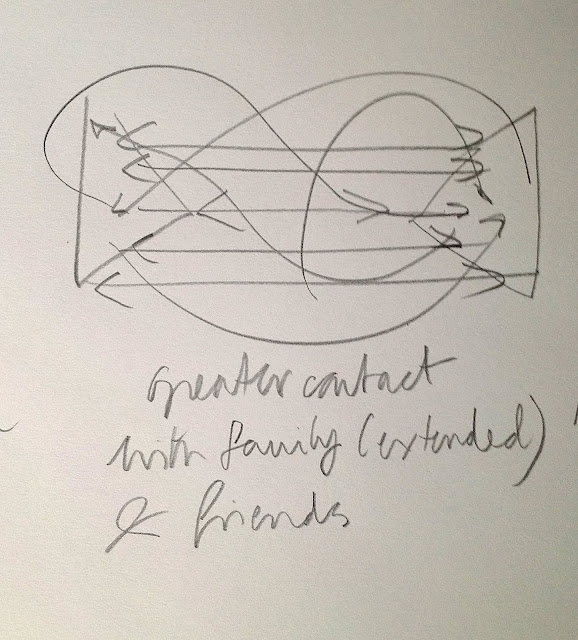 greater contact
with family (extended)
& friends